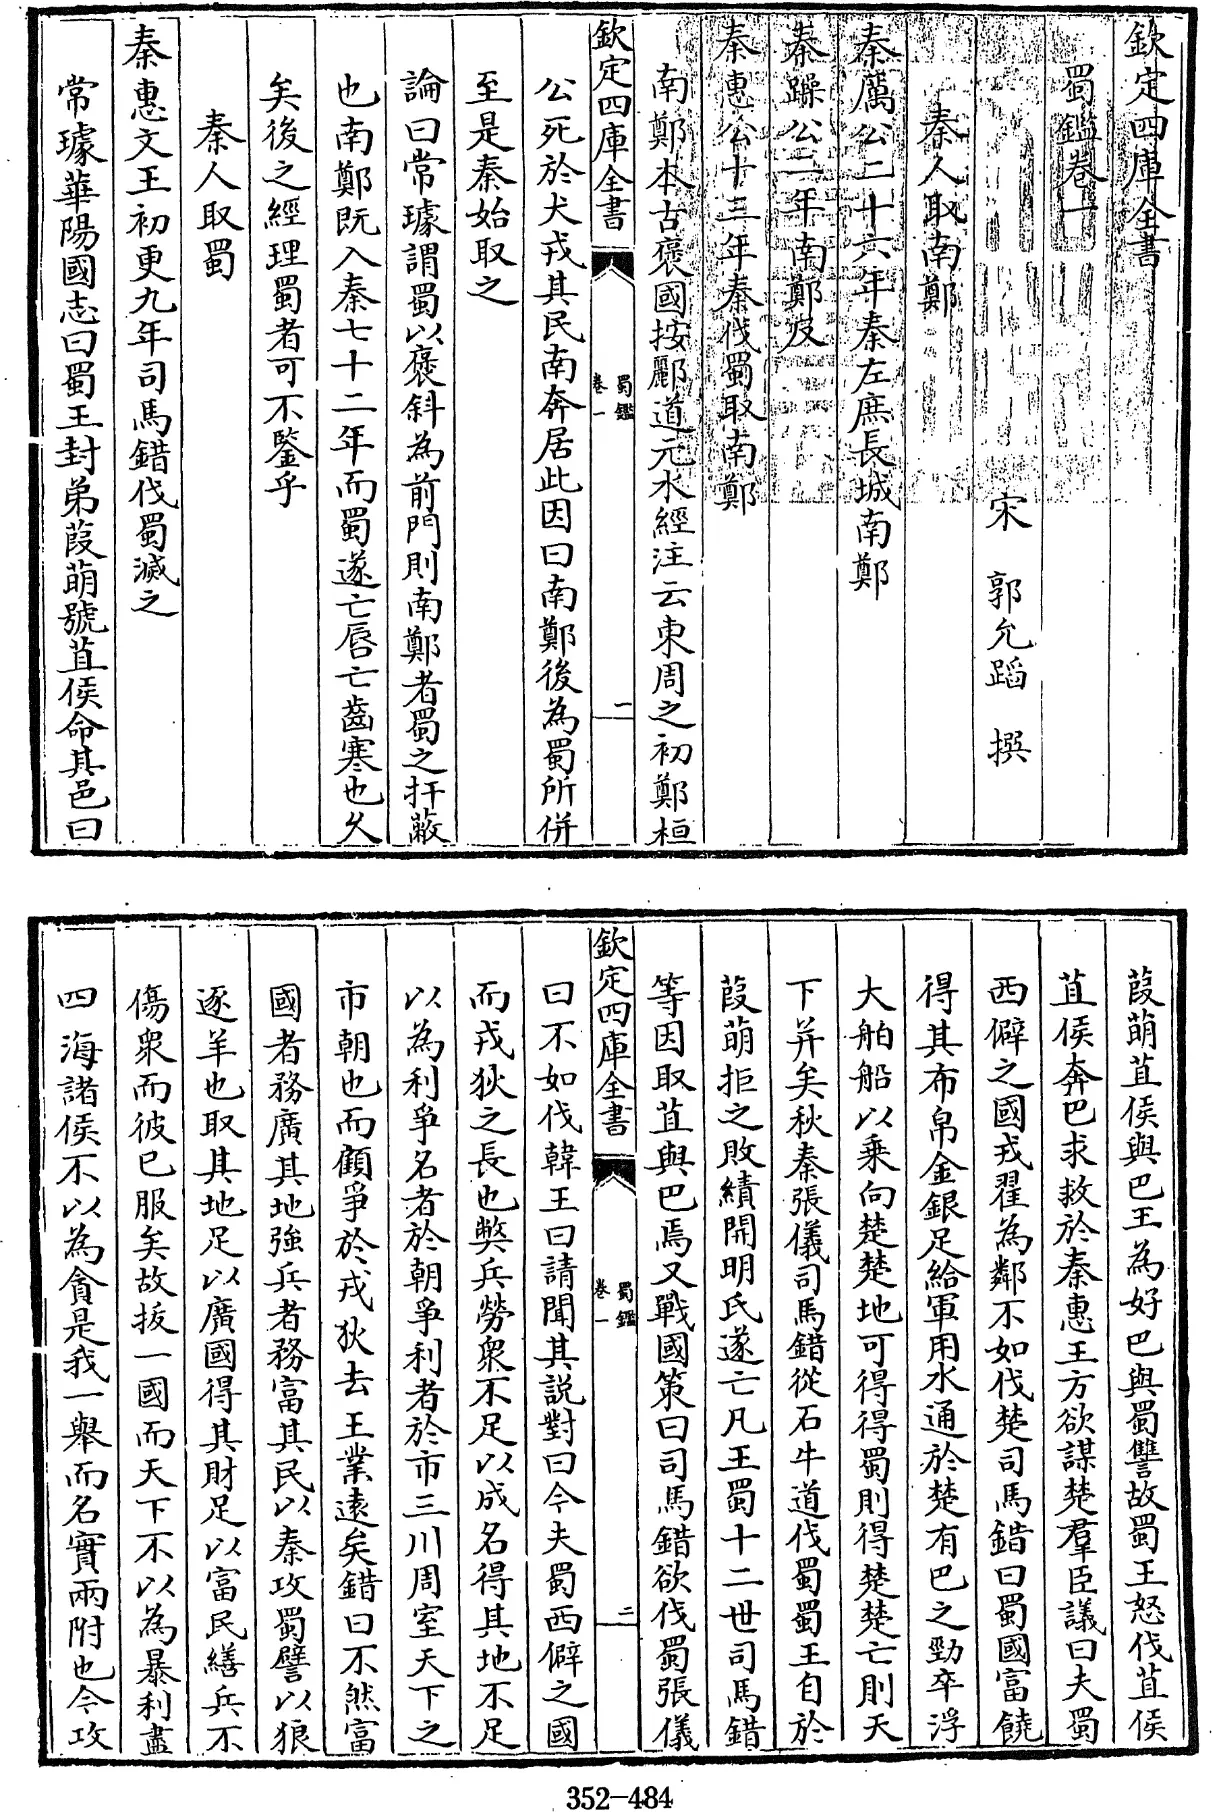 欽定四庫全書
蜀鑑卷一
宋 郭允蹈 撰
秦人取南鄭
秦厲公二十六年秦左庶長城南鄭
秦躁公二年南鄭反
秦惠公十三年秦伐蜀取南鄭
南鄭本古褒國按酈道元水經注云東周之初鄭桓
欽定四庫全書
蜀鑑
卷一
一
公死於犬戎其民南奔居此因曰南鄭後為蜀所併
至是秦始取之
論曰常璩謂蜀以褒斜為前門則南鄭者蜀之扞蔽
也南鄭既入秦七十二年而蜀遂亡唇亡齒寒也久
矣後之經理蜀者可不鑒乎
秦人取蜀
秦惠文王初更九年司馬錯伐蜀滅之
常璩華陽國志曰蜀王封弟葭萌號苴侯命其邑曰
葭萌苴侯與巴王為好巴與蜀讐故蜀王怒伐苴侯
苴侯奔巴求救於秦惠王方欲謀楚羣臣議曰夫蜀
西僻之國戎翟為鄰不如伐楚司馬錯曰蜀國富饒
得其布帛金銀足給軍用水通於楚有巴之勁卒浮
大舶船以乘向楚楚地可得得蜀則得楚楚亡則天
下并矣秋秦張儀司馬錯從石牛道伐蜀蜀王自於
葭萌拒之敗績開明氏遂亡凡王蜀十二世司馬錯
等因取苴與巴焉又戰國策曰司馬錯欲伐蜀張儀
欽定四庫全書
蜀鑑
卷一
二
曰不如伐韓王曰請聞其說對曰今夫蜀西僻之國
而戎狄之長也獘兵勞衆不足以成名得其地不足
以為利爭名者於朝爭利者於市三川周室天下之
市朝也而顧爭於戎狄去王業遠矣錯曰不然富
國者務廣其地強兵者務富其民以秦攻蜀譬以狼
逐羊也取其地足以廣國得其財足以富民繕兵不
傷衆而彼已服矣故拔一國而天下不以為暴利盡
四海諸侯不以為貪是我一舉而名實兩附也今攻
352-484